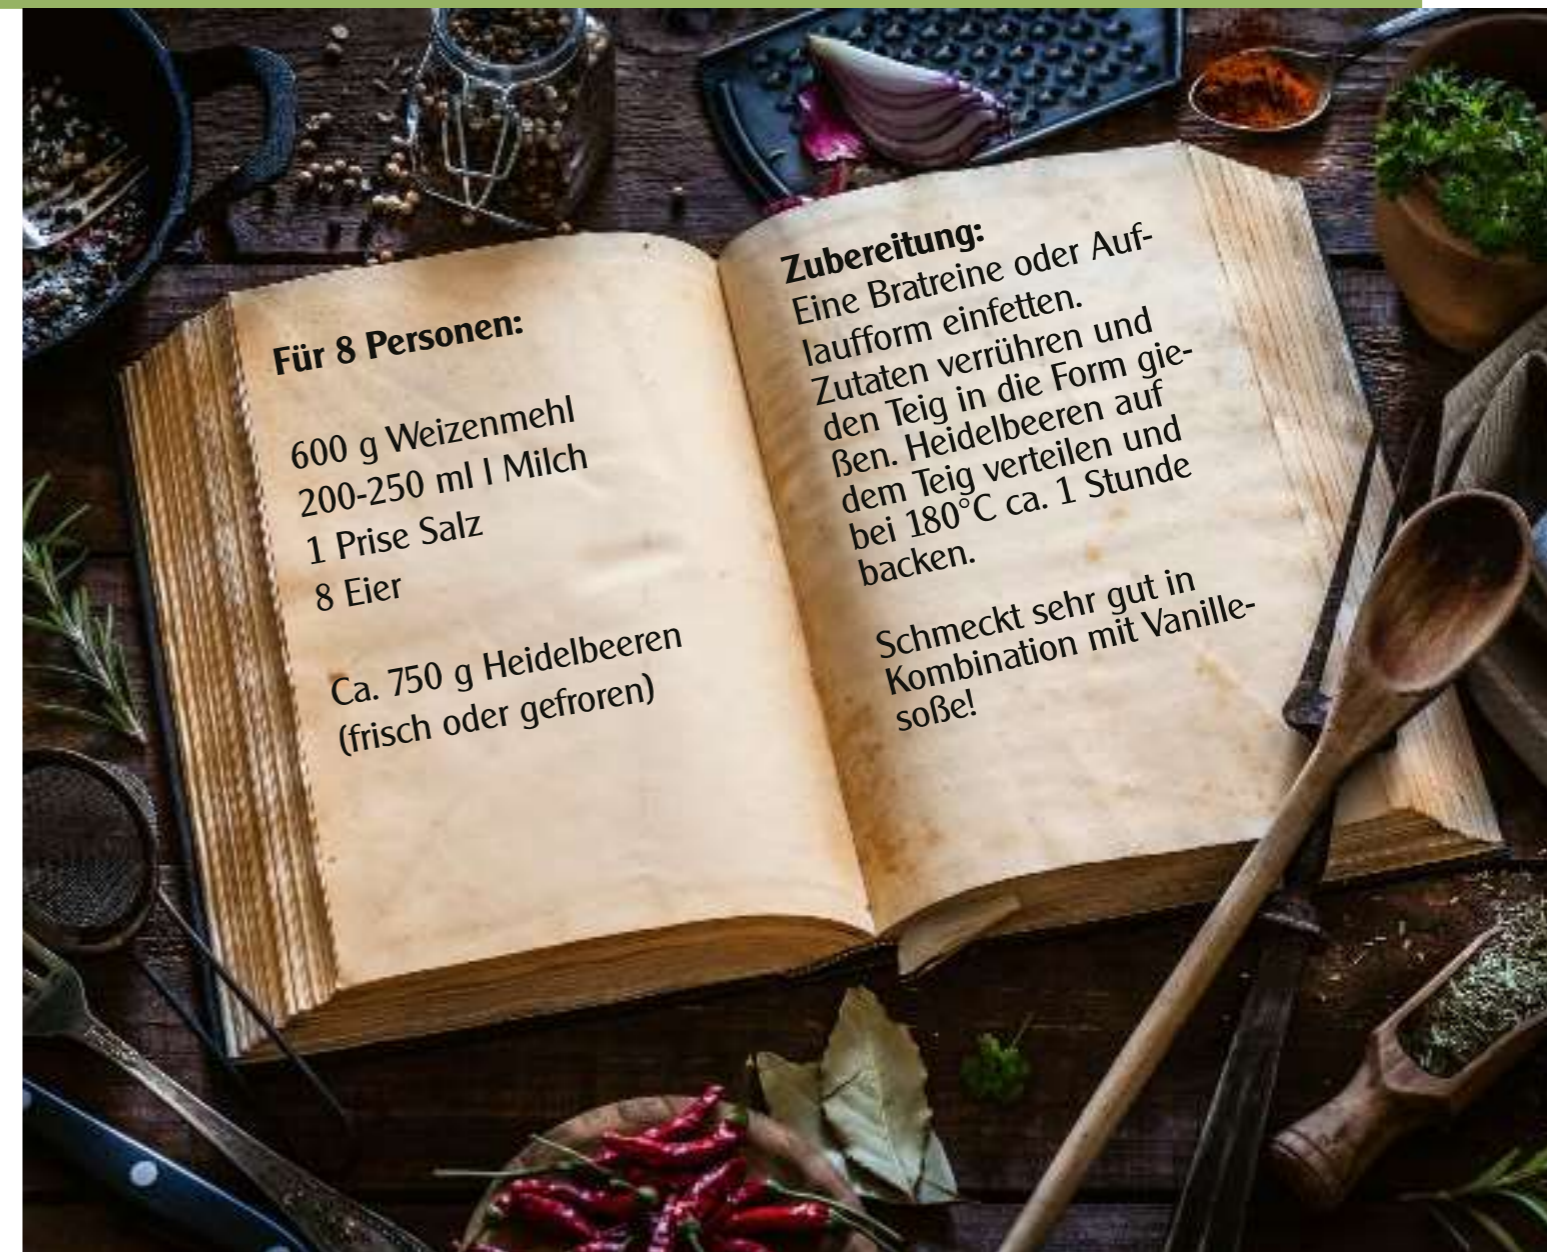 Für 8 Personen:
600 g Weizenmehl
200-250 ml l Milch
1 Prise Salz
8 Eier
Ca. 750 g Heidelbeeren
(frisch oder gefroren)
Zubereitung:
Eine Bratreine oder Auf-
laufform einfetten.
Zutaten verrühren und
den Teig in die Form gie-
ßen. Heidelbeeren auf
dem Teig verteilen und
bei 180°C ca. 1 Stunde
backen.
Schmeckt sehr gut in
Kombination mit Vanille-
soße!